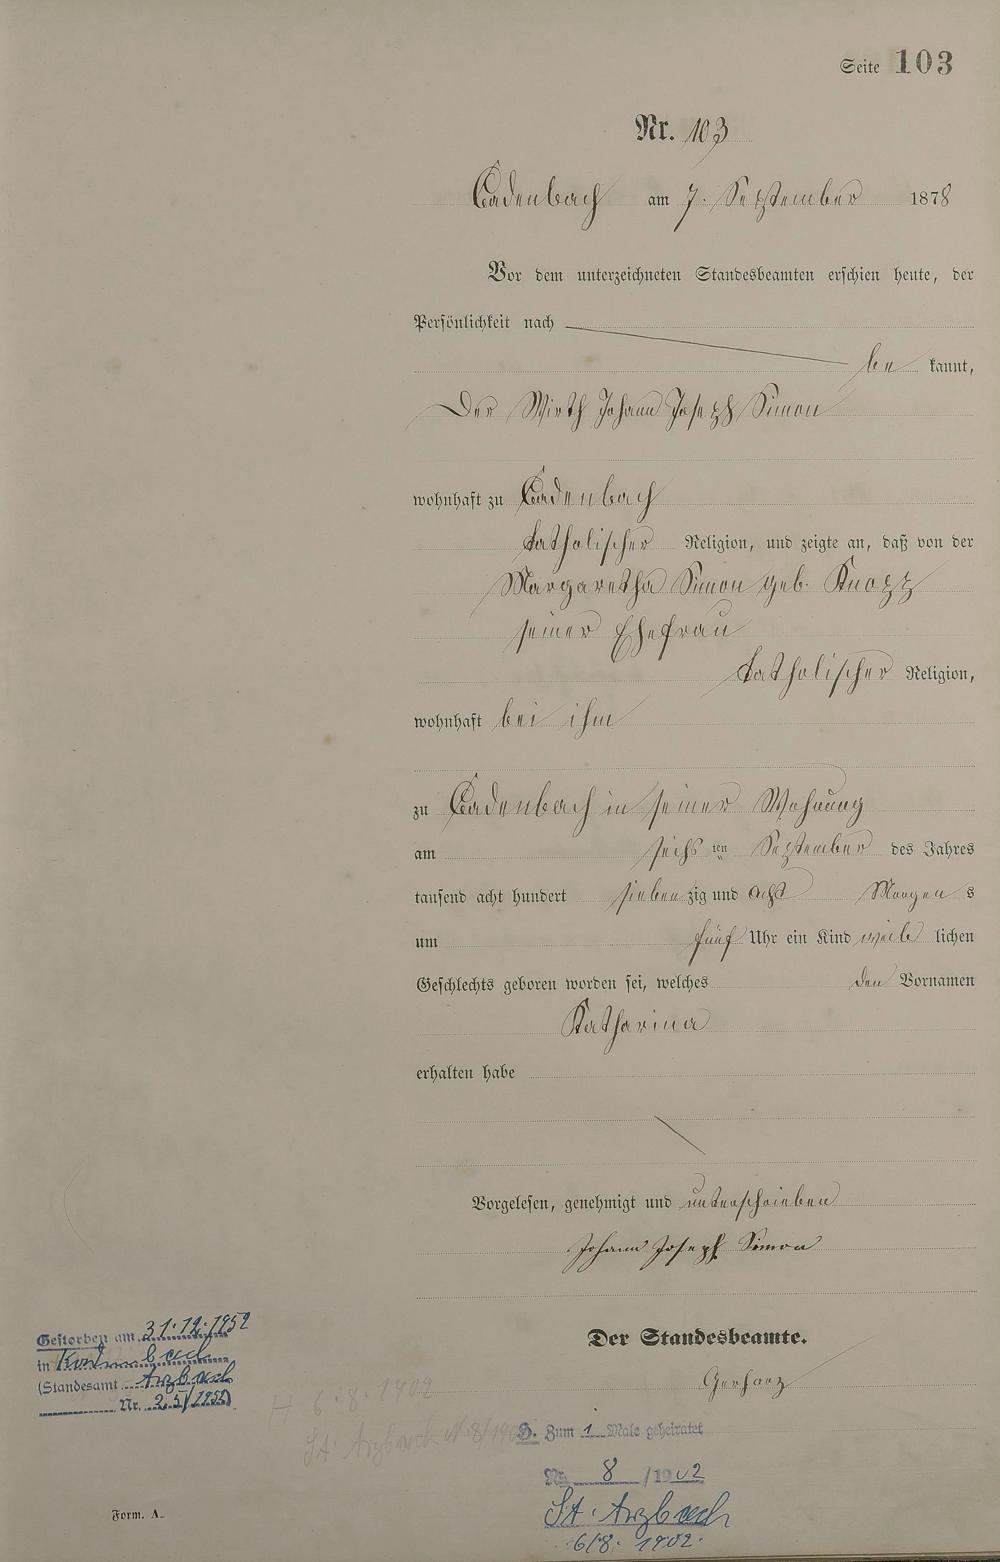 Seite 103
Nr. 103
Cadenbach am 7. September 1878
Vor dem unterzeichneten Standesbeamten erschien heute, der
Persönlichkeit nach
be kannt,
Der Wirth Johann Joseph Simon
wohnhaft zu Cadenbach
katholischer Religion, und zeigte an, daß von der
Margaretha Simon geb. Knopp
seiner Ehefrau
katholischer Religion,
wohnhaft bei ihm
zu Cadenbach in seiner Wohnung
am sechs ten September des Jahres
tausend acht hundert sieben zig und acht Morgen s
um fünf Uhr ein Kind weib lichen
Geschlechts geboren worden sei, welches den Vornamen
Katharina
erhalten habe
Vorgelesen, genehmigt und unterschrieben
Johann Joseph Simon
Der Standesbeamte.
Gerharz
Gestorben am 31.12.1952
in Kadenbach
(Standesamt Arzbach
Nr. 25/1952)
H 6.8.1902
St. Arzbach N. 8/1902
B. Zum 1 Male geheiratet
Nr. 8 /1902
St. Arzbach
6/8. 1902.
Form. A.